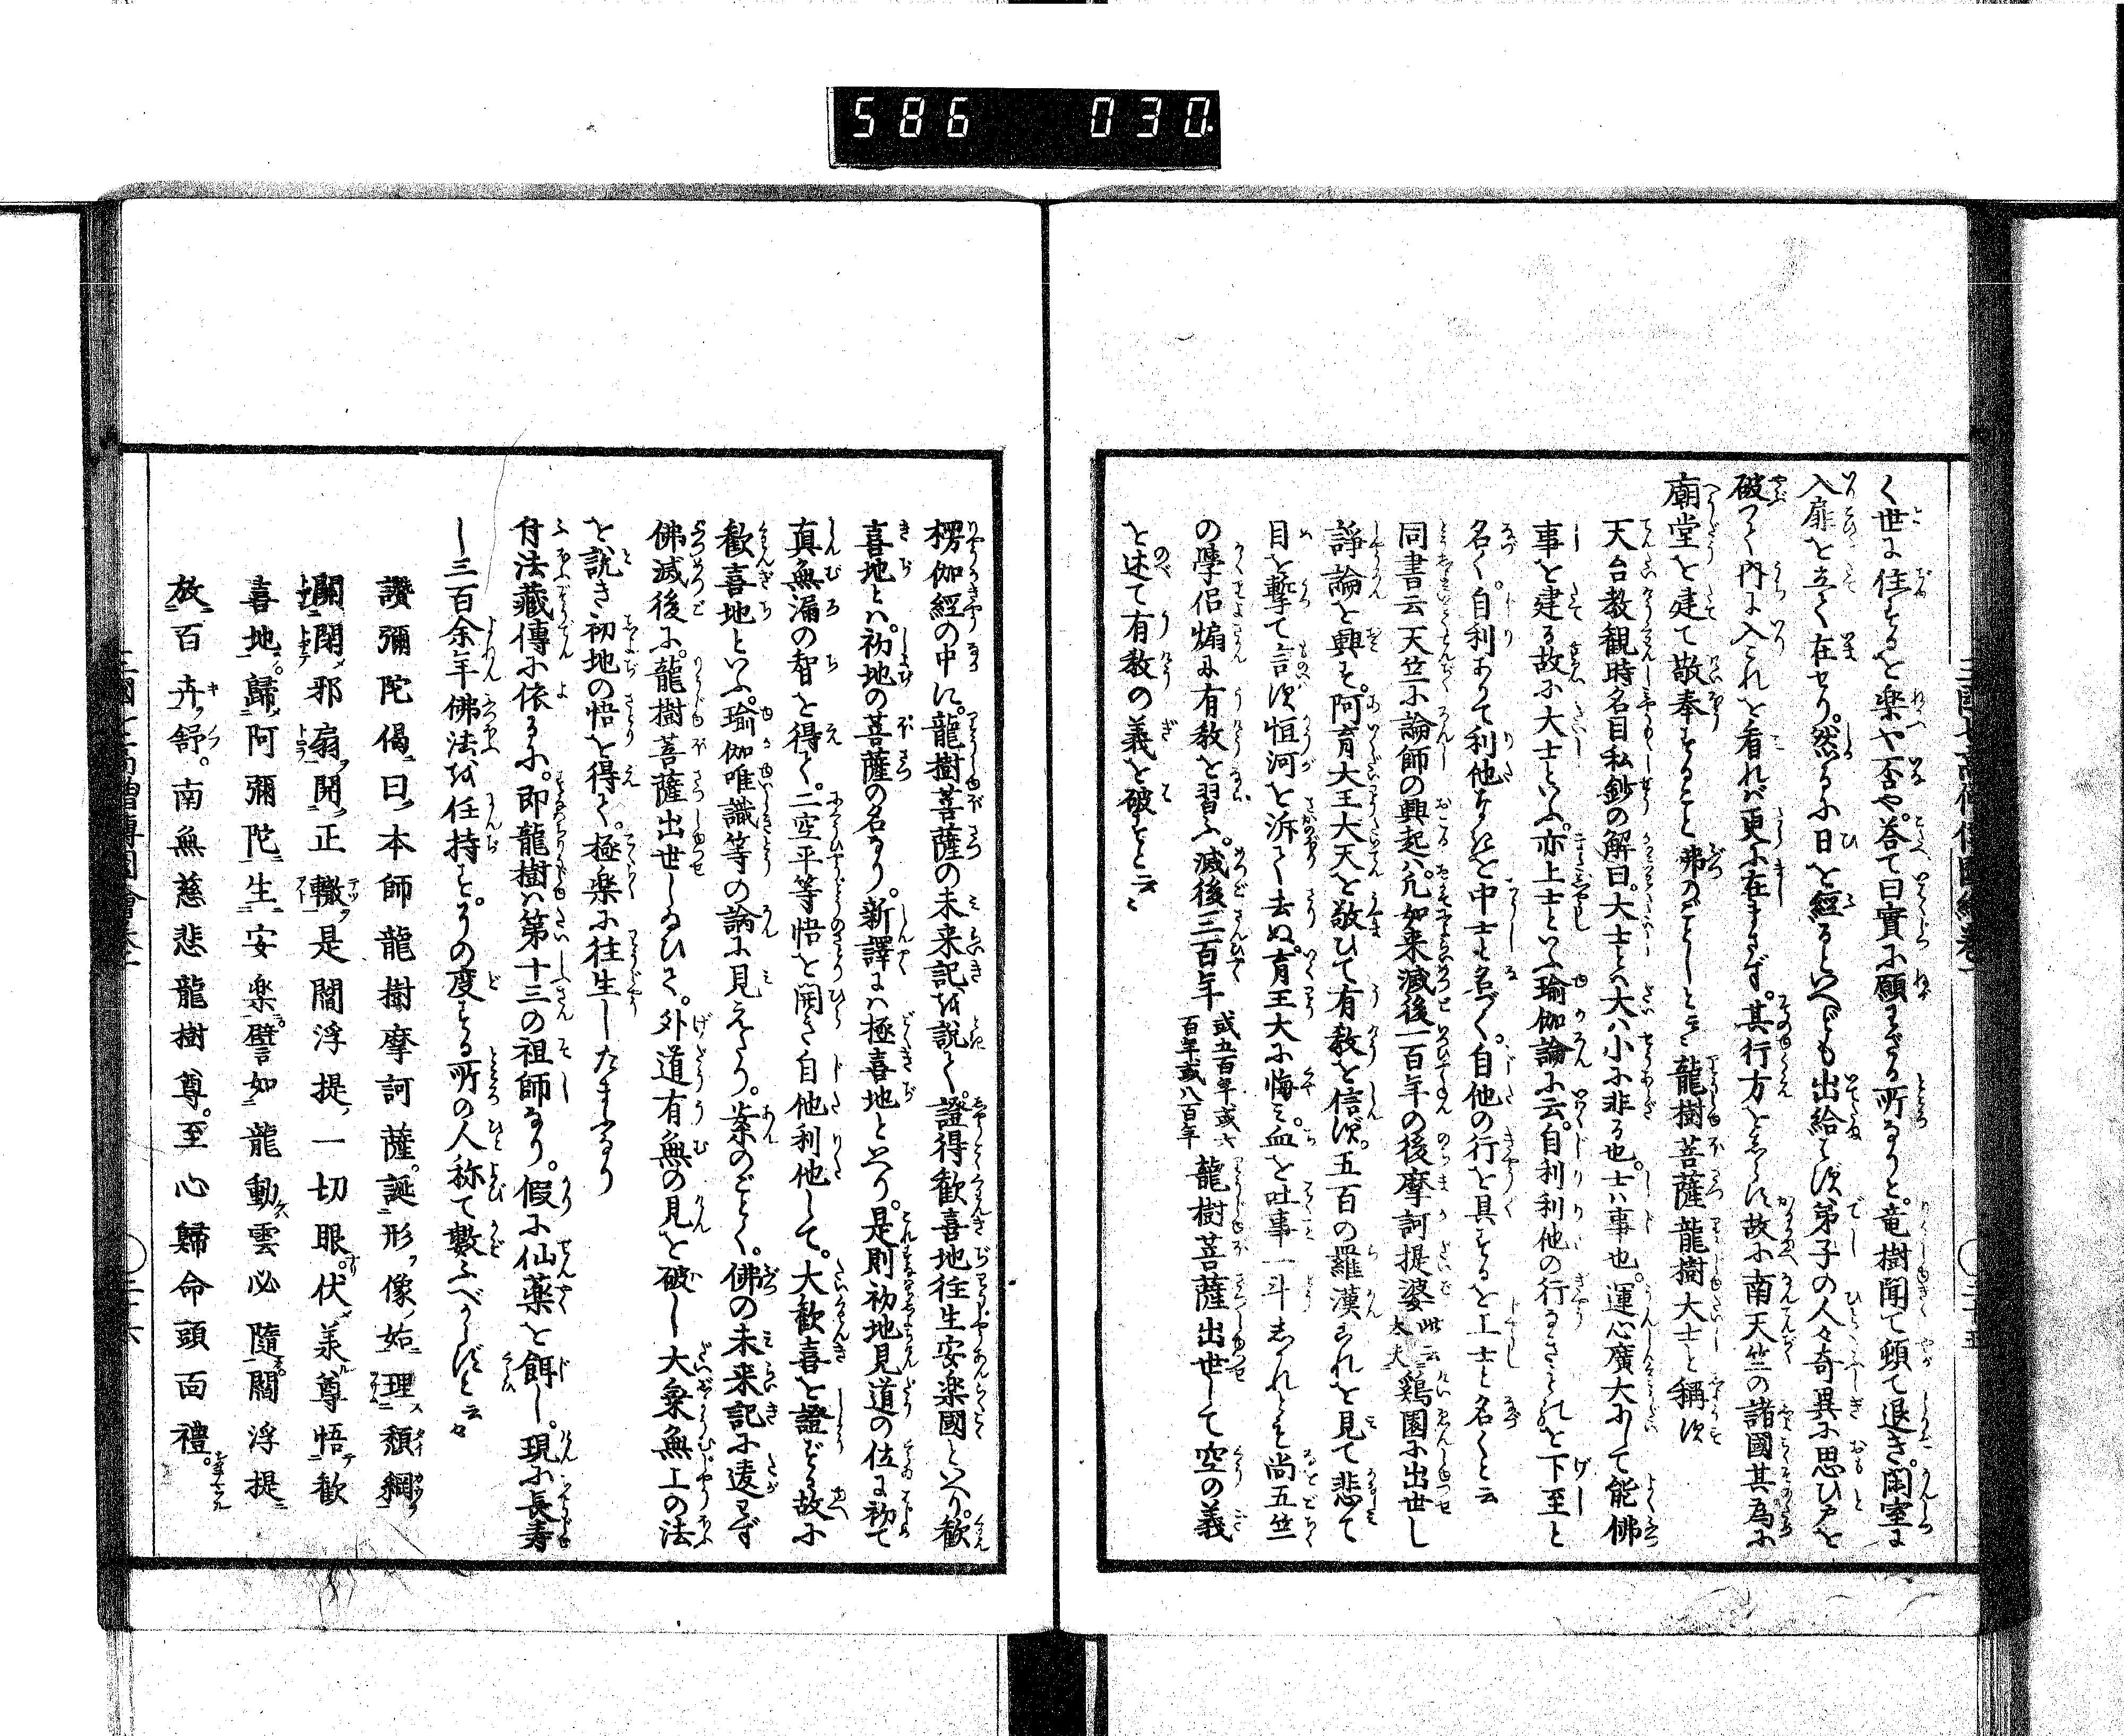 586 030
く世に住するを楽や否や。答て曰實に願ざる所なりと。竜樹聞て頓て退き。閑室に
入扉を立て在せり。然るに日を經るといへども出給はず弟子の人々奇異に思ひ戸を
破つて内に入これを看れば更に在まさず。其行方をしらず故に南天竺の諸國其為に
廟堂を建て敬奉すること佛のごとしと云 龍樹菩薩龍樹大士と稱す
天台教観時名目私鈔の解曰。大士とは大ハ小に非る也。士ハ事也。運心廣大にして能佛
事を建る故に大士といふ。亦上士といふ瑜伽論に云。自利利他の行なきこれを下士と
名く。自利ありて利他なきを中士と名づく。自他の行を具するを上士と名くと云
同書云天竺に論師の興起ハ。凡如来滅後一百年の後摩訶提婆 此云大天 鶏園に出世し
諍論を興す。阿育大王大天を敬ひて有教を信ず。五百の羅漢これを見て悲て
目を撃て言ず恒河を泝て去ぬ。育王大に悔み。血を吐事一斗これども尚五竺
の學侶煽に有教を習ふ。滅後三百年 或五百年或六百年或八百年 龍樹菩薩出世して空の義
を述て有教の義を破すと云々
三國七高僧傳圖繪巻一 〇 三十五
楞伽經の中に。龍樹菩薩の未来記を説く。證得歓喜地往生安楽國といへり。歓
喜地とハ。初地の菩薩の名なり。新譯にハ極喜地といへり。是則初地見道の位に初て
真無漏の智を得て。二空平等悟を開き自他利他して。大歓喜を證ずる故に
歓喜地といふ。瑜伽唯識等の論に見えたり。案のごとく。佛の未来記に違はず
佛滅後に。龍樹菩薩出世し給ひて。外道有無の見を破し大乗無上の法
を説き初地の悟を得て。極楽に往生したまふなり
付法藏傳に依るに。即龍樹ハ第十三の祖師なり。假に仙薬を餌し。現に長寿
し三百余年佛法を任持す。その度する所の人称て數ふべからずと云々
讃彌陀偈曰本師龍樹摩訶薩。誕形像始理頽綱
關閉邪扇開正轍是閻浮提一切眼。伏羕尊悟歓
喜地歸阿彌陀生安楽。譬如龍動雲必隨閻浮提
放百卉舒。南無慈悲龍樹尊。至心歸命頭面禮。
三國七高僧傳圖會巻一 〇 三十六